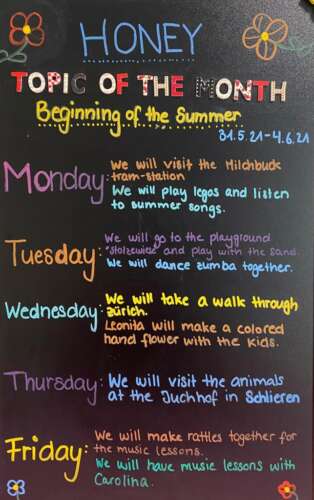 HONEY
TOPIC OF THE MONTH
Beginning of the Summer
31.5.21-4.6.21
Monday: We will visit the Milchbuck
tram-station
We will play legos and listen
to summer songs.
Tuesday: We will go to the playground
"Stolzewise" and play with the sand.
We will dance zumba together.
Wednesday: We will take a walk through
zürich.
Leonita will make a colored
hand flower with the kids.
Thursday: We will visit the animals
at the Juchhof in Schlieren
Friday: We will make rattles together for
the music lessons.
We will have music lessons with
Carolina.